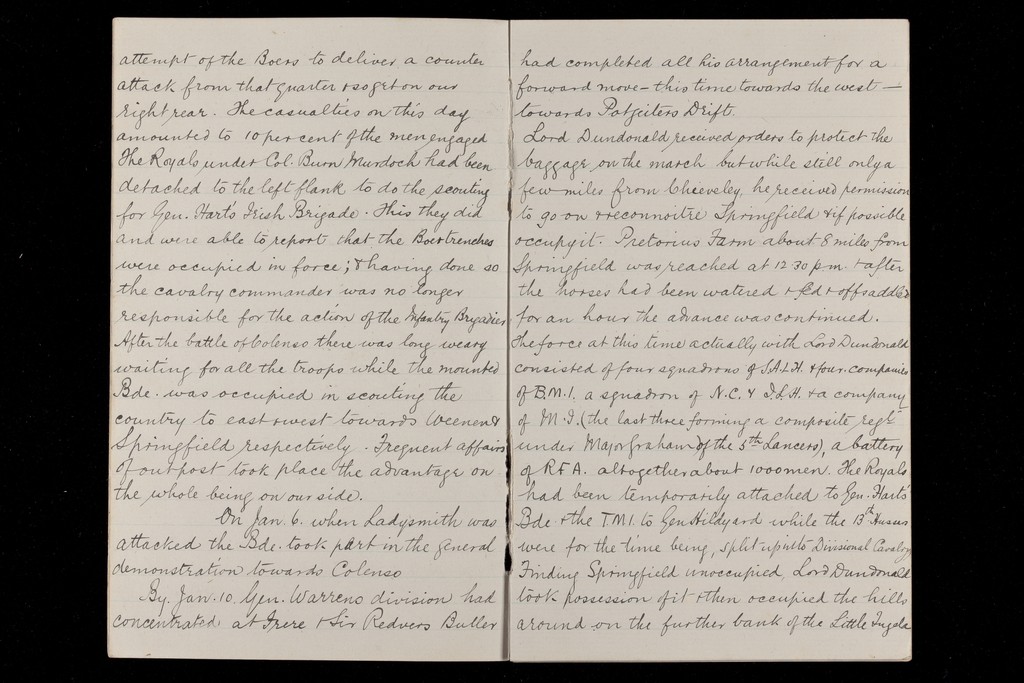 attempt of the Boers to deliver a counter
attack from that quarter & so get on our
right rear. The casualties on this day
amounted to 10 per cent of the men engaged
The Royals under Col. Burn Murdoch had been
detached to the left flank to do the scouting
for Gen. Hart's Irish Brigade. This they did
and were able to report that the Boer trenches
were occupied in force; & having done so
the cavalry commander was no longer
responsible for the action of the Infantry Brigadier
After the battle of Colenso there was long weary
waiting for all the troops while the mounted
Bde. was occupied in scouting the
country to east & west towards Weenen &
Springfield respectively. Frequent affairs
of outpost took place the advantage on
the whole being on our side.
On Jan. 6. when Ladysmith was
attacked the Bde. took part in the general
demonstration towards Colenso
By Jan. 10. Gen. Warrens division had
concentrated at Frere & Sir Redvers Buller
had completed all his arrangement for a
forward move – this time towards the west –
towards Potgieters Drift.
Lord Dundonald received orders to protect the
baggage on the march but while still only a
few miles from Chieveley, he received permission
to go on & reconnoitre Springfield & if possible
occupy it. Pretorius Farm about 8 miles from
Springfield was reached at 12.30 p.m. & after
the horses had been watered & fed & offsaddled
for an hour the advance was continued.
The force at this time actually with Lord Dundonald
consisted of four squadrons of S.A.L.H. & four companies
of B.M.I. a squadron of N.C. & I.L.H. & a company
of M.I. (the last three forming a composite regt
under Major Graham of the 5th Lancers), a battery
of RFA. altogether about 1000 men. The Royals
had been temporarily attached to Gen. Hart's
Bde. & the T.M.I. to Gen Hildyard while the 13th Hussars
were for the time being, split up into Divisional Cavalry
Finding Springfield unoccupied, Lord Dundonald
took possession of it & then occupied the hills
around on the further bank of the Little Tugela